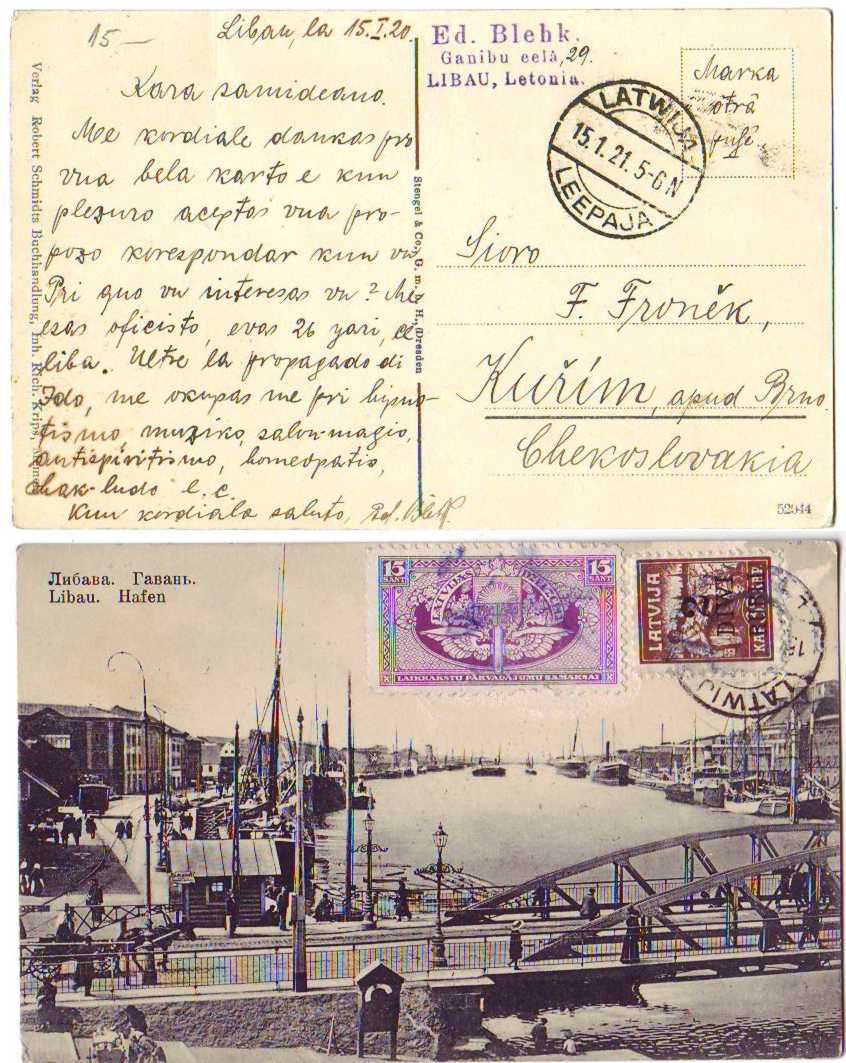 15—
Libau, la 15.I.20.
Kara samideano.
Me kordiale dankas pro
vua bela karto e kun
plezuro aceptas vua pro-
pozo korespondar kun vu
Pri quo vu interesas vu? Me
esas oficisto, evas 26 yari, e
liba. Ultre la propagado di
Ido, me okupas me pri hipno-
tismo, muziko, salon-magio,
antispiritismo, homeopatio,
shak-ludo e.c.
Kun kordiala saluto, Ed. Blehk.
Verlag Robert Schmidts Buchhandlung, Inh. Rich. Krips,
Stengel & Co., G. m. b. H., Dresden
Ed. Blehk.
Ganibu eelâ, 29.
LIBAU, Letonia.
Marka
otrâ
pusê.
LATWIJA
15.1.21.5-6N
LEEPAJA
Sioro
F. Fronĕk,
Kuřim, apud Brno.
Chekoslovakia
52044
Либава. Гавань.
Libau. Hafen
15 SANT. 15 SANT.
LATVIJAS
LAIKRAKSTU PĀRVADĀJUMU SAMAKSAI
LATVIJA
2
DIWI
KAP.
RUB.
LATWIJ